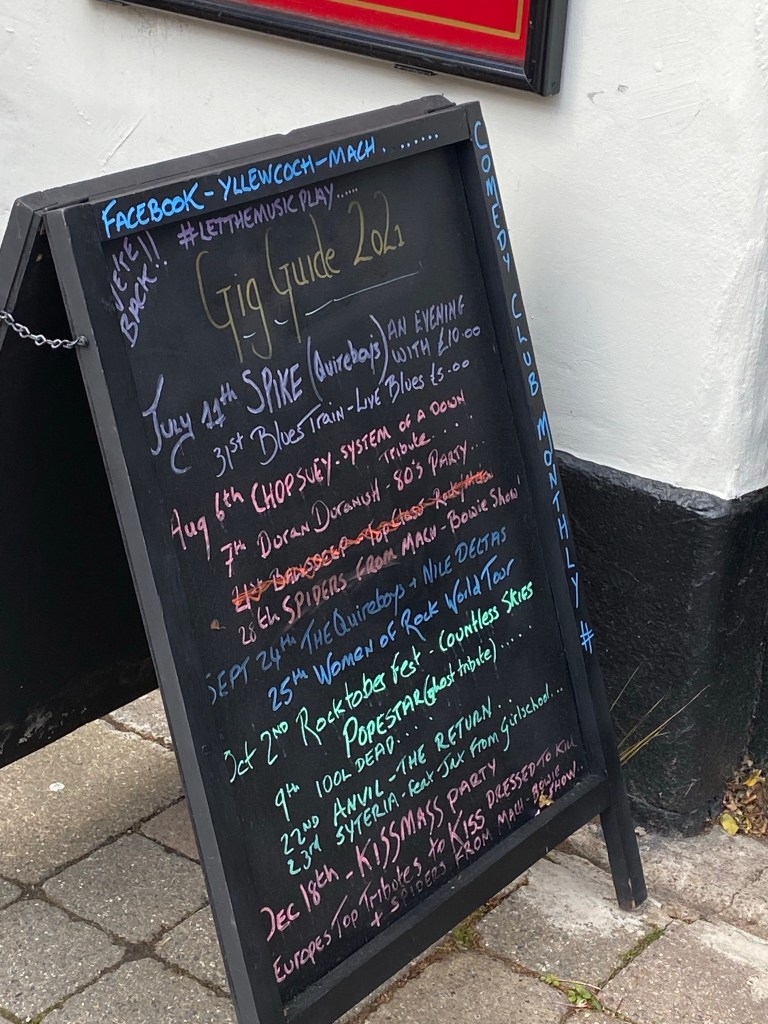 FACEBOOK - YLLEWCOCH - MACH . ......
#LETTHEMUSICPLAY......
WE'RE
BACK!!
Gig Guide 2021
July 11th SPIKE (Quireboys) AN EVENING
WITH £10.00
31st Blues Train - Live Blues £5.00
Aug 6th CHOPSUEY - SYSTEM OF A DOWN
Tribute....
7th Duran Duranish - 80's PARTY...
28th SPIDERS FROM MACH - Bowie Show
SEPT 24th THE Quireboys + NILE DELTAS
25th Women of Rock World Tour
Oct 2ND Rocktober Fest - Countless Skies
POPESTAR (ghost tribute).....
9th 100% DEAD....
22ND ANVIL - THE RETURN..
23rd SYTERIA - feat Jax From Girlschool...
DEC 18th - KISSMASS PARTY
Europes Top Tributes to KISS DRESSED TO KILL
+ SPIDERS FROM MACH - BOWIE SHOW..
COMEDY CLUB MONTHLY #